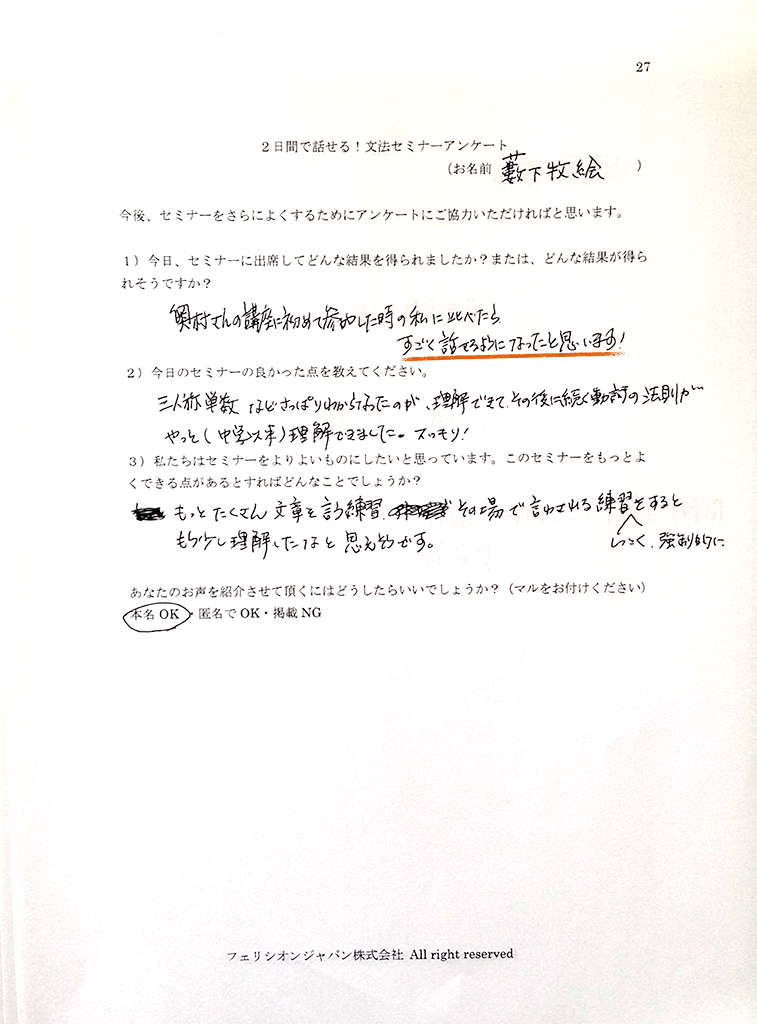 27
2日間で話せる！文法セミナーアンケート
（お名前 藪下牧絵 ）
今後、セミナーをさらによくするためにアンケートにご協力いただければと思います。
1）今日、セミナーに出席してどんな結果を得られましたか？または、どんな結果が得ら
れそうですか？
奥村さんの講座に初めて参加した時の私に比べたら
すごく話せるようになったと思います！
2）今日のセミナーの良かった点を教えてください。
三人称単数などさっぱりわからなかったのが、理解できて、その後に続く動詞の法則が
やっと（中学以来）理解できました。スッキリ！
3）私たちはセミナーをよりよいものにしたいと思っています。このセミナーをもっとよ
くできる点があるとすればどんなことでしょうか？
もっとたくさん文章を言う練習、その場で言わされる練習をすると
しつこく、強制的に
もう少し理解したなと思えそうです。
あなたのお声を紹介させて頂くにはどうしたらいいでしょうか？（マルをお付けください）
本名 OK・匿名で OK・掲載 NG
フェリシオンジャパン株式会社 All right reserved